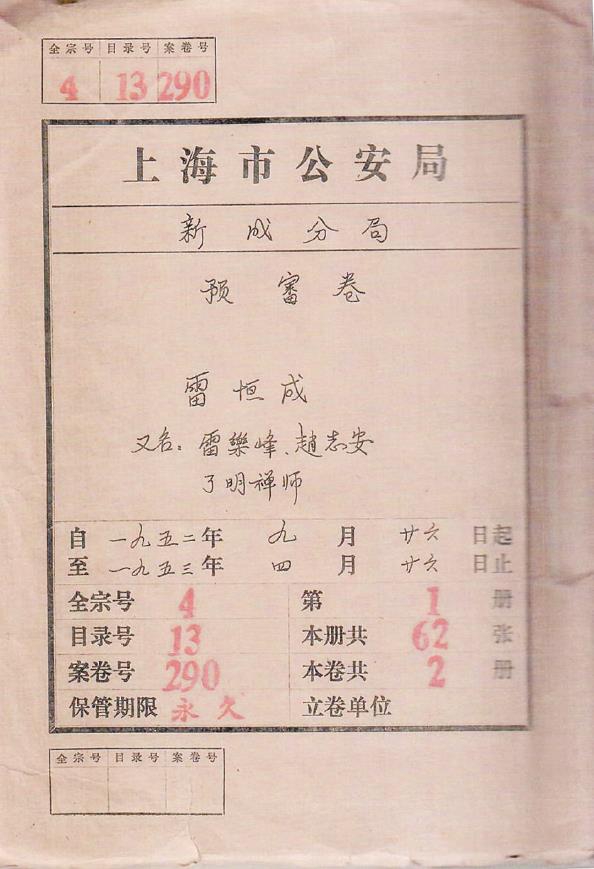 全宗号 目录号 案卷号
4 13 290
上海市公安局
新成分局
预審卷
雷恒成
又名：雷樂峰、趙志安
了明禅师
自 一九五二年 九 月 廿六 日起
至 一九五三年 四 月 廿六 日止
全宗号 4 第 1 册
目录号 13 本册共 62 张
案卷号 290 本卷共 2 册
保管期限 永久 立卷单位
全宗号 目录号 案卷号